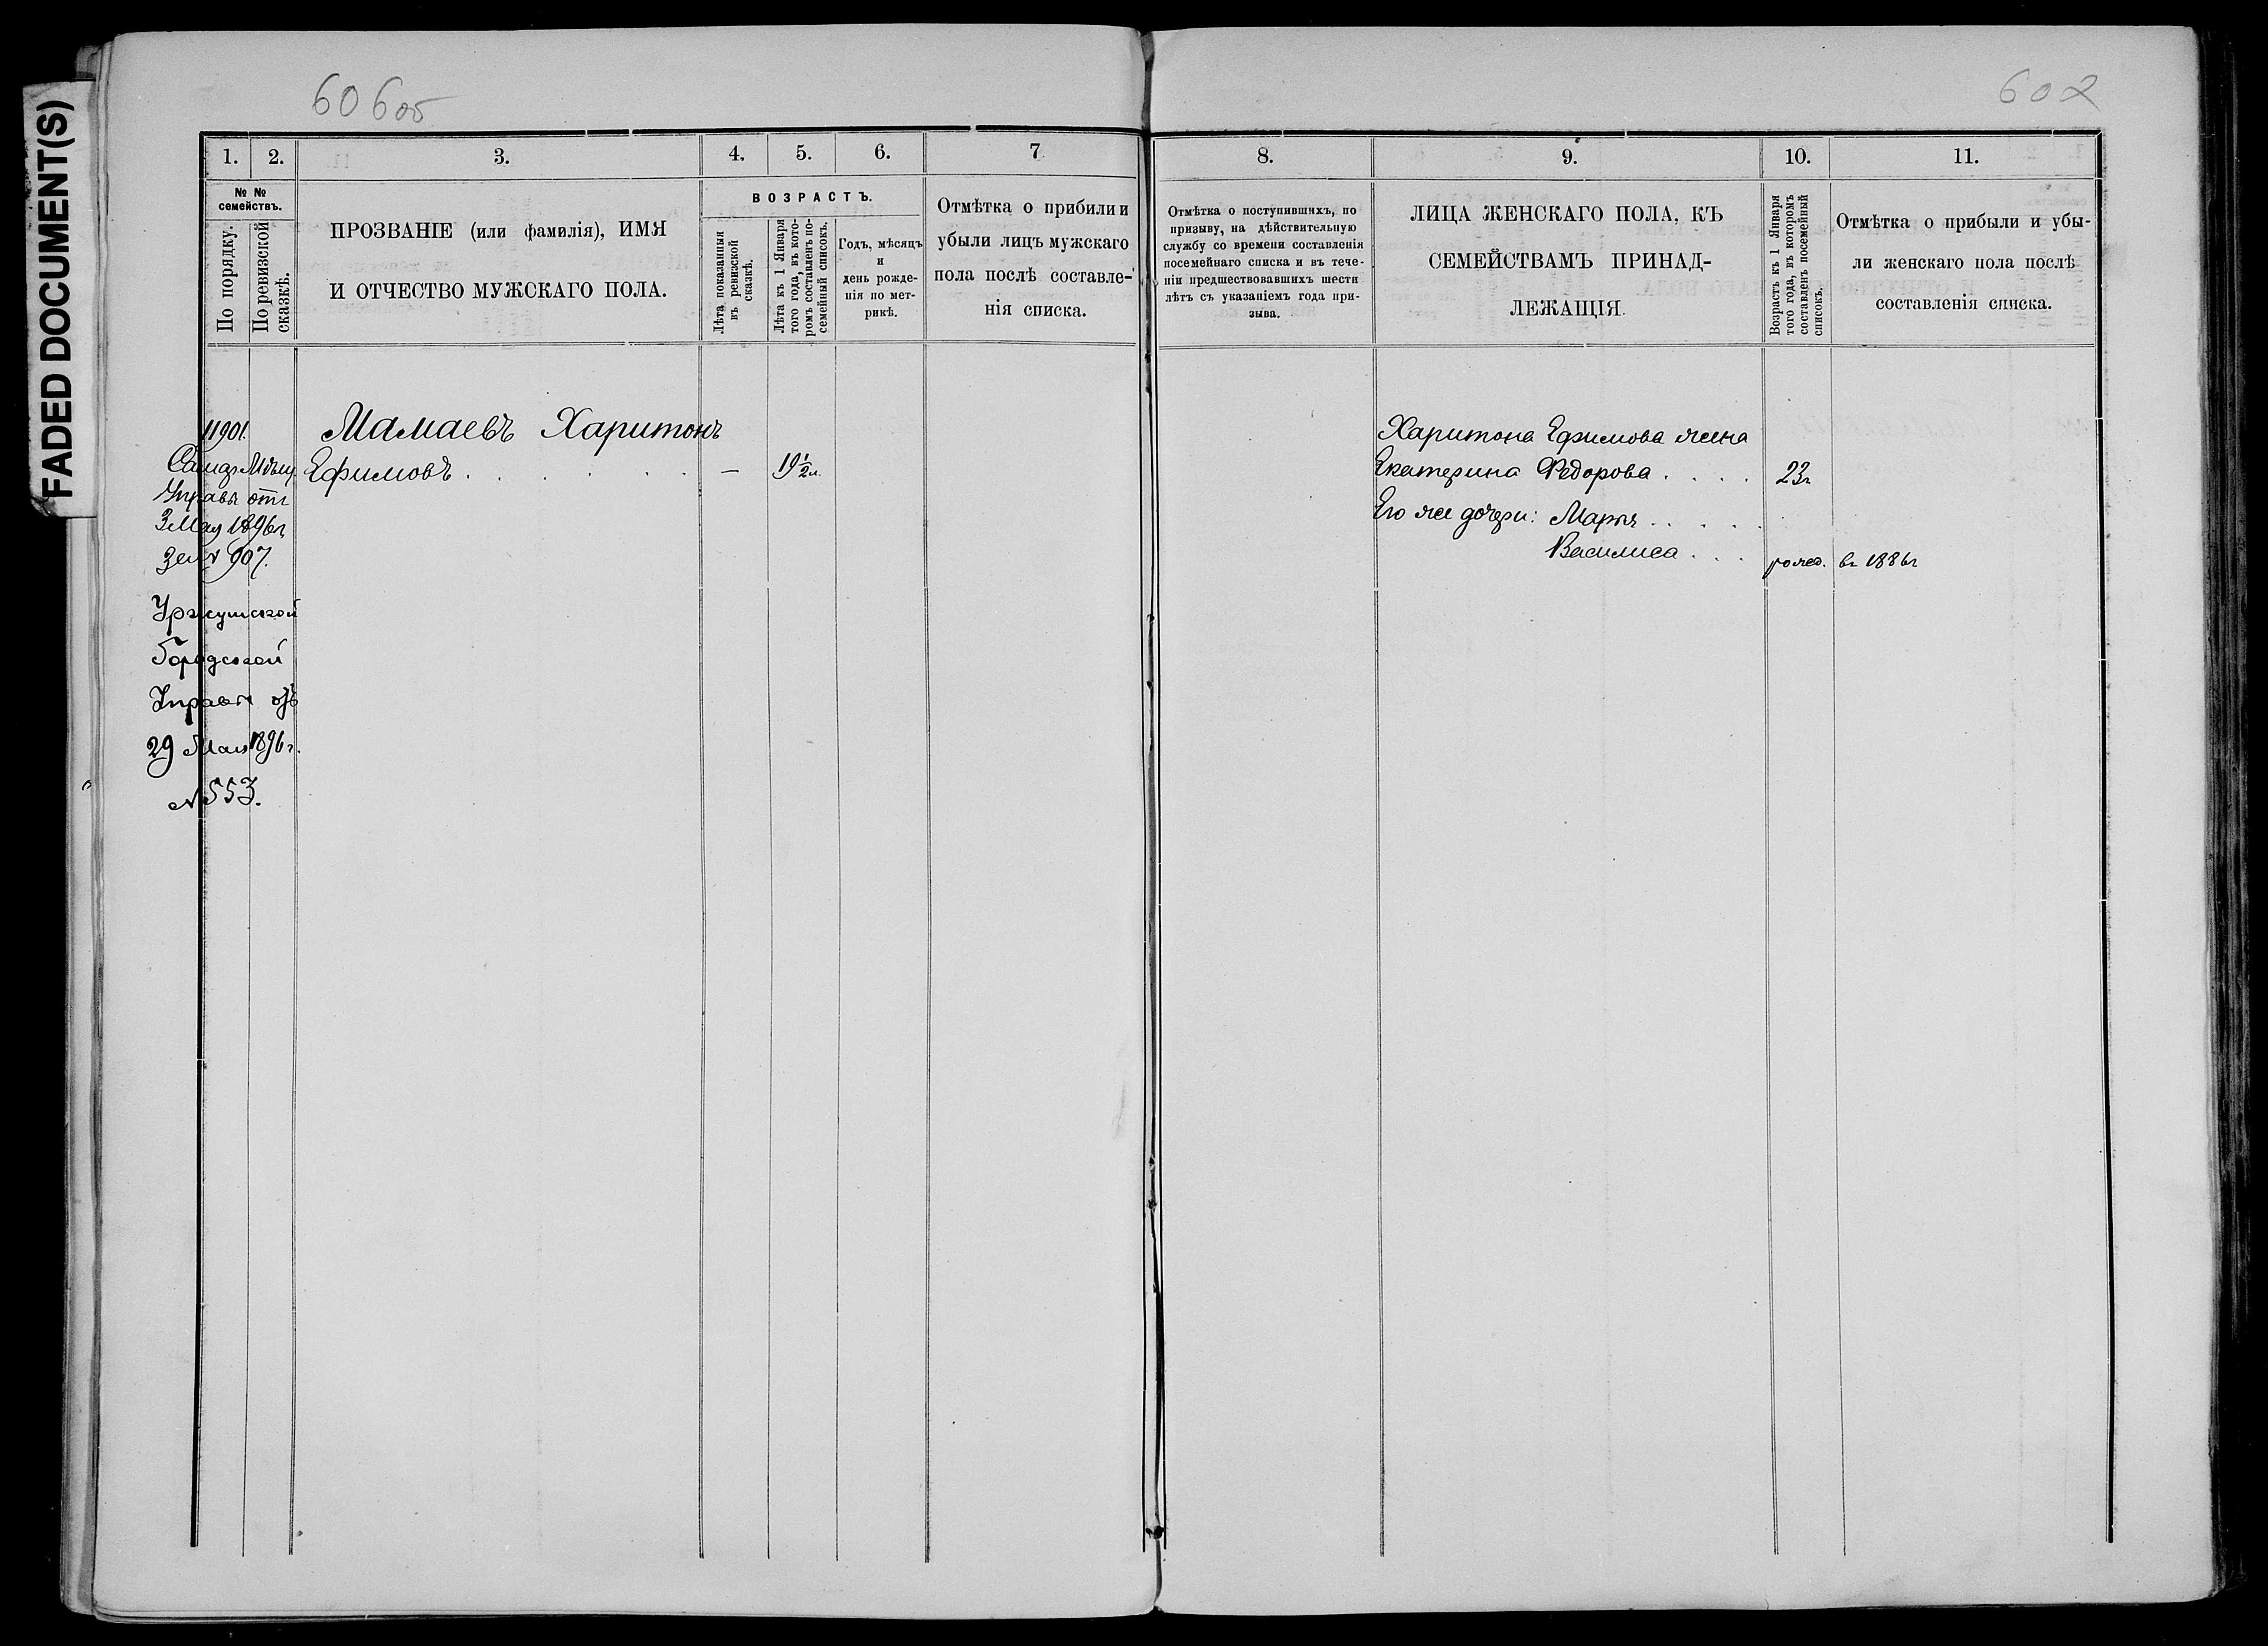 FADED DOCUMENT(S)
606об
602
1.
2.
3.
4.
5.
6.
7
№ №
семействъ.
По порядку.
По ревизской
сказкѣ.
ПРОЗВАНІЕ (или фамилія), ИМЯ
И ОТЧЕСТВО МУЖСКАГО ПОЛА.
ВОЗРАСТЪ.
Лѣта показанныя
въ ревизской
сказкѣ.
Лѣта къ 1 Января
того года, въ кото-
ромъ составленъ по-
семейный списокъ.
Годъ, мѣсяцъ
и
день рожде-
нія по мет-
рикѣ.
Отмѣтка о прибыли и
убыли лицъ мужскаго
пола послѣ составле-
нія списка.
8.
9.
10.
11.
Отмѣтка о поступившихъ, по
призыву, на дѣйствительную
службу со времени составленія
посемейнаго списка и въ тече-
ніи предшествовавшихъ шести
лѣтъ съ указаніемъ года при-
зыва.
ЛИЦА ЖЕНСКАГО ПОЛА, КЪ
СЕМЕЙСТВАМЪ ПРИНАД-
ЛЕЖАЩІЯ.
Возрастъ къ 1 Января
того года, въ которомъ
составленъ посемейный
списокъ.
Отмѣтка о прибыли и убы-
ли женскаго пола послѣ
составленія списка.
11901.
Мѣщ.
Управы отъ
3 Мая 1896г
за № 907.
Городской
Управы
29 Мая 1896 г.
№ 553.
Мамаевъ Харитонъ
Ефимовъ . . . . . — 19 1/2 л.
Харитона Ефимова жена
Екатерина Федорова . . . . 23г
Его же дочери: Марья . . . . .
Василиса . . . рожд. въ 1886г